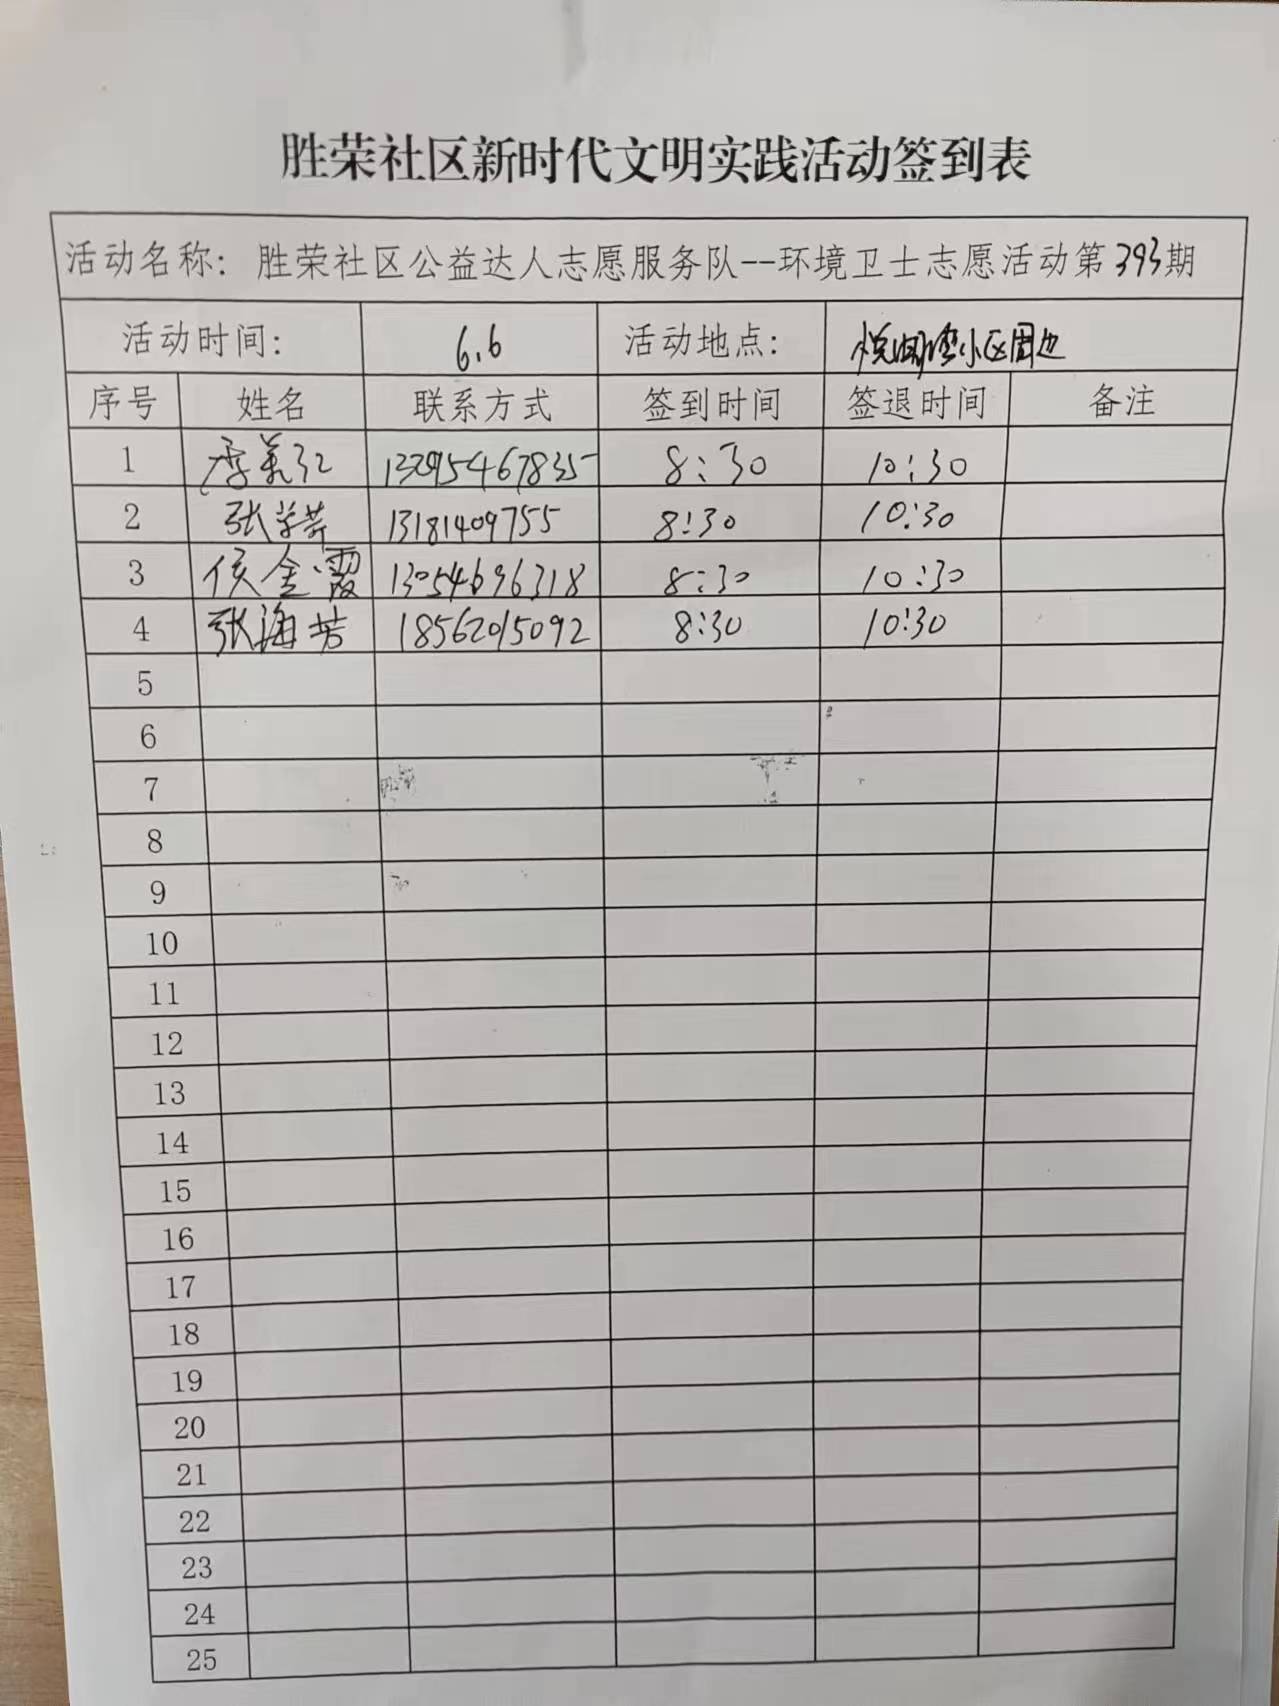 胜荣社区新时代文明实践活动签到表
活动名称：胜荣社区公益达人志愿服务队--环境卫士志愿活动第393期
活动时间： 6.6 活动地点： 悦湖湾小区周边
序号 姓名 联系方式 签到时间 签退时间 备注
1 李美红 13295467835 8:30 10:30
2 张芳 13181409755 8:30 10:30
3 侯金霞 13054696318 8:30 10:30
4 张海芳 18562015092 8:30 10:30
5
6
7
8
9
10
11
12
13
14
15
16
17
18
19
20
21
22
23
24
25